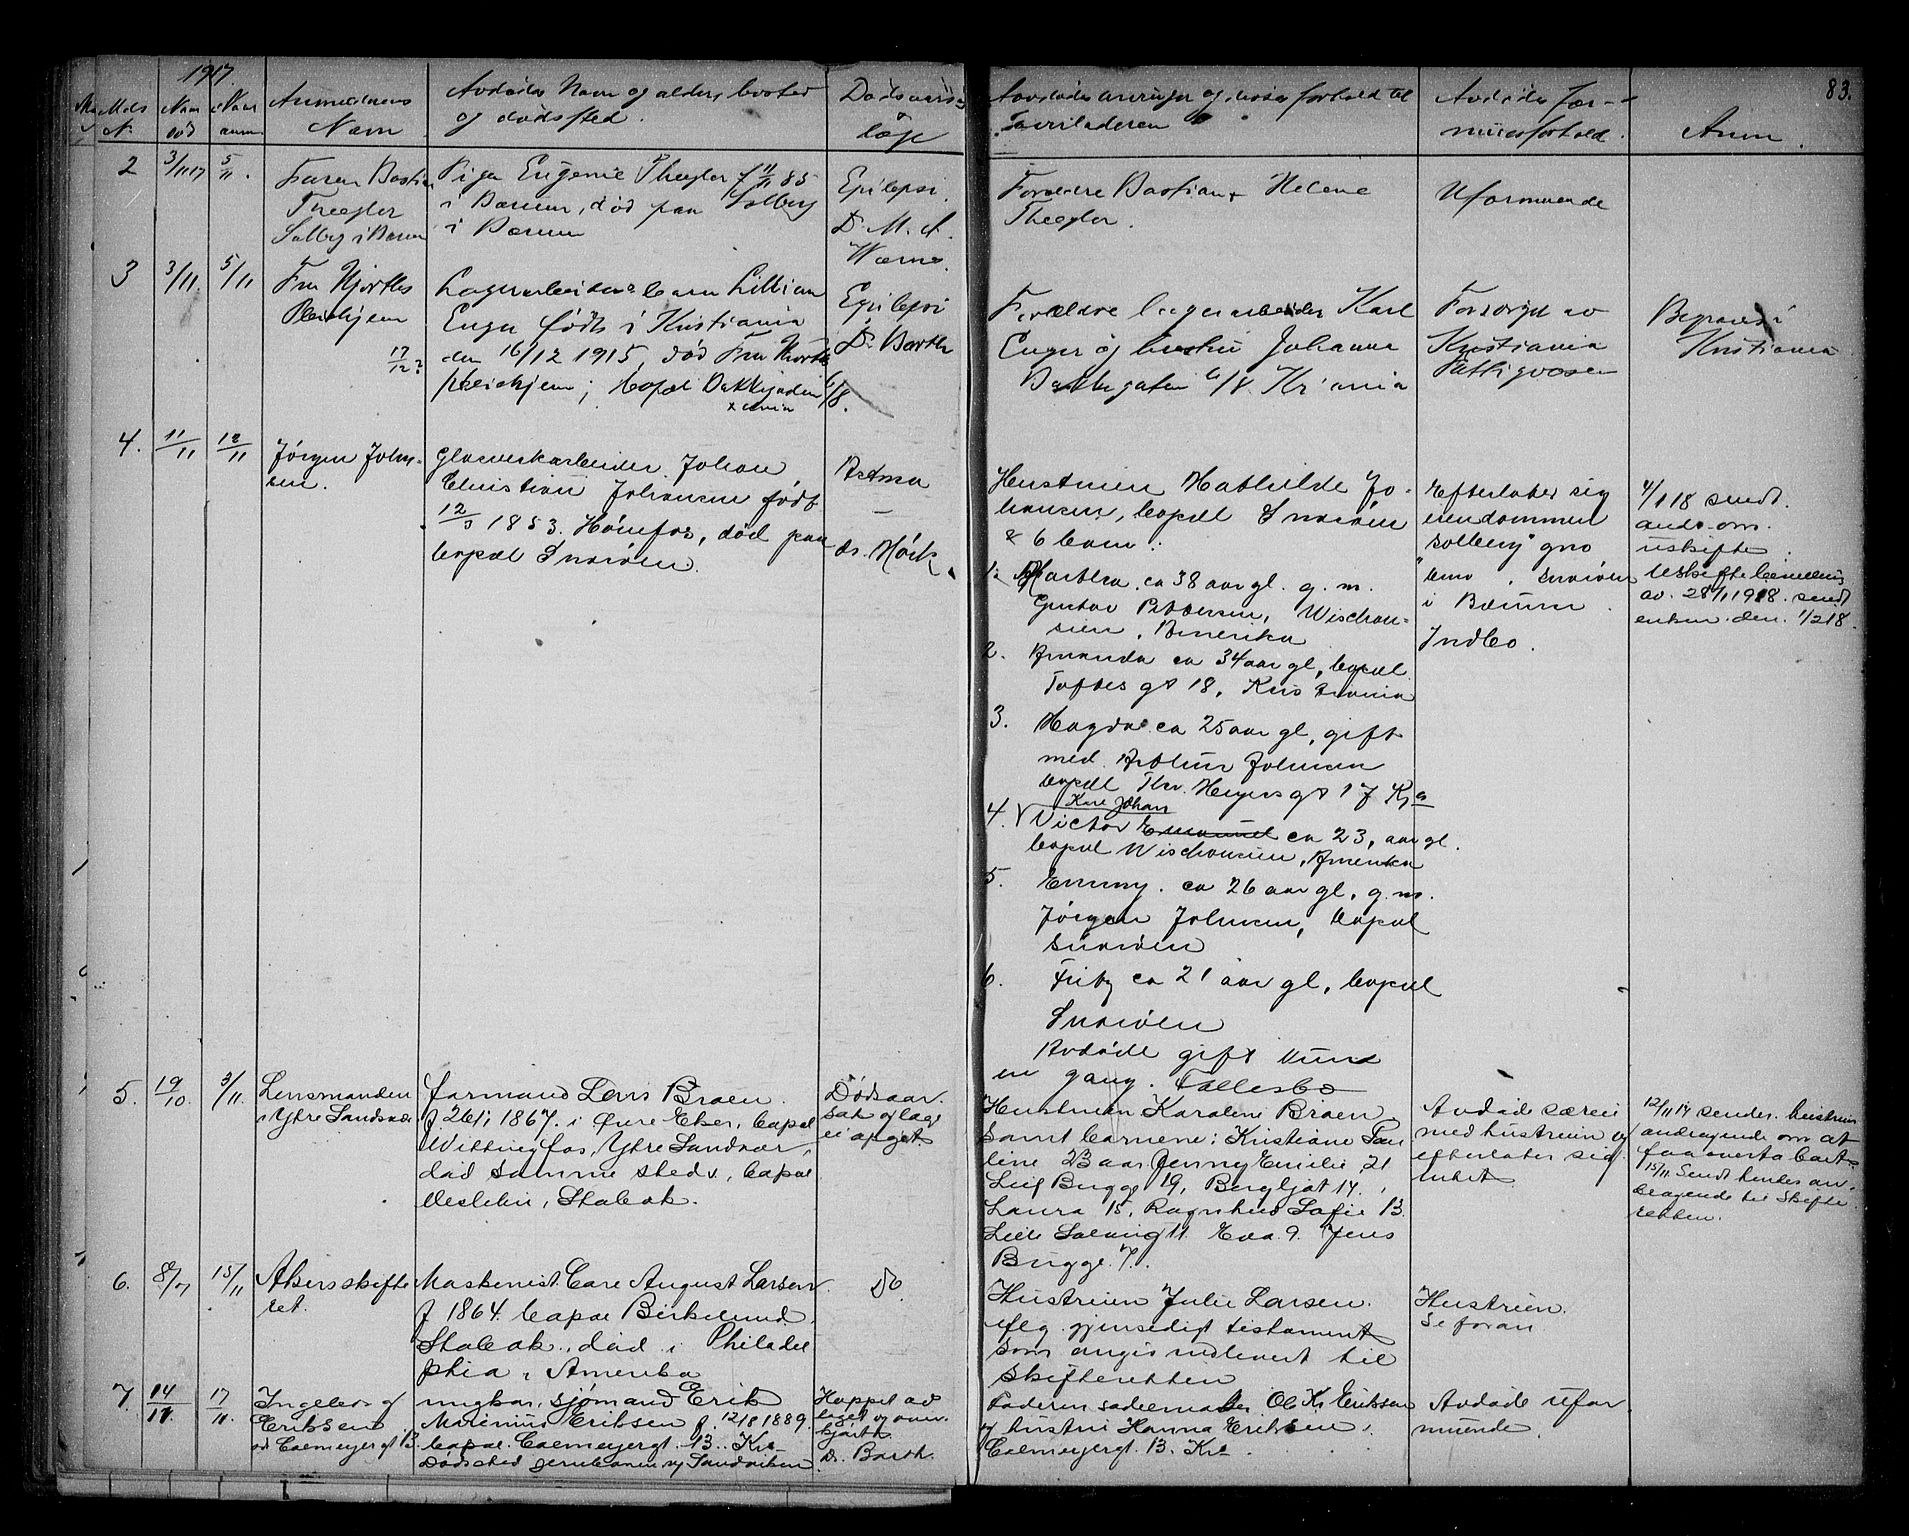 1917.
83.
Meds N.
Naar død
Naar anm.
Anmelderens Navn
Avdødes Navn og alder, bosted
og dødssted.
Dødsaars. læge
Avdødes arvinger og disses forhold til
Avdødes formuesforhold.
Anm.
2
3/11 17
5/11.
Faren Bastian
Theegler
Solberg i Bærum
Pige Eugenie Theegler f 11/11 85
i Bærum, død paa Solberg
i Bærum
Epilepsi.
Dr. M. d.
Forældre Bastian + Helene
Theegler.
Uformuende
3
3/11.
5/11
Fru Hjorths
Pleiehjem
17/12?
Lagerarbeider barn Lillian
Enger født i Kristiania
den 16/12 1915, død Fru Hjorth
pleiehjem; bopæl Dakkegaden 6/8.
Epilepsi
Dr. Barth
Forældre lagerarbeider Karl
Enger og hustru Johanne
Dakkegaten 6/8. Kr.ania
Forsørget av
Kristiania
Fattigvæsen
Begraves i
Kristiania
4.
11/11
12/11
Jørgen Johnsen.
Glasverkarbeider Johan
Christian Johansen født
12/3 1853. Hønefos, død paa
bopæl Snarøen.
Astma
—
dr. Høek.
Hustruen Mathilde Johansen, bopæl Snarøen
& 6 barn:
1. Martha. ca 38 aar gl. g. m.
Gustav Pettersen, Wischonsien, Amerika
2. Amanda ca 34 aar gl, bopæl
Toftes gt 18, Kristiania
3. Magda ca 25 aar gl, gift
med Arthur Johnsen
bopæl Thv. Meyers gt 17 Kr.a
Karl Johan
4. Victor Emanuel ca 23, aar gl.
bopæl Wischonsien, Amerika
5. Emmy. ca 26 aar gl, g. m.
Jørgen Johnsen, bopæl
Snarøen
6. Fritz ca 21 aar gl, bopæl
Snarøen
Avdøde gift kun
en gang. Fællesbo
Efterlater sig
eiendommen
"Solberg" gno
bno , Snarøen
i Bærum.
Indbo.
4/1 18 sendt
ands. om
uskifte.
Uskiftebevilling
av 28/1 1918 sendt
enken den 1/2 18.
5.
19/10
3/11.
Lensmanden
i Ytre Sandsvær
Garmand Lars Braen.
f 26/1 1867. i Øvre Eker, bopæl
Wittingfos, Ytre Sandsvær,
død samme sted, bopæl
Stabæk.
Dødsaarsak og læge
ei opget
Hustruen Karoline Braen
samt barnene: Kristiane Pauline 23 aar, Jenny Emilie 21
Leif Bugge 19, Bergljot 17.
Laura 15, Ragnhild Sofie 13
Lilli Solveig 11. Eva. 9. Jens
Bugge. 7.
Avdøde særeie
med hustruen og
efterlater sig
intet
12/11 17 sendes hustruen
andragende om at
faa overta boet.
15/11 Sendt hendes andragende til Skifteretten.
6.
8/7
15/11
Akers skifteret.
Maskinist Carl August Larsen
f 1864. bopæl Birkelund,
Stabæk, død i Philadelphia i Amerika
Do.
Hustruen Julie Larsen.
iflg. gjensidigt testament
som angis indlevert til
skifteretten
Hustruen.
Se foran
7.
14/11.
17/11.
Ingeborg
Eriksen
Colmeyergt 13
ungkar, sjømand Erik
Marinius Eriksen f. 12/8 1889.
bopæl Colmeyergt. 13. Kr.a
Dødssted jernbanen ny Sandviken
Dr. Barth.
Faderen sadelmaker Ole Kr. Eriksen
og hustru Hanna Eriksen,
Colmeyergt. 13. Kr.a
Avdøde uformuende.